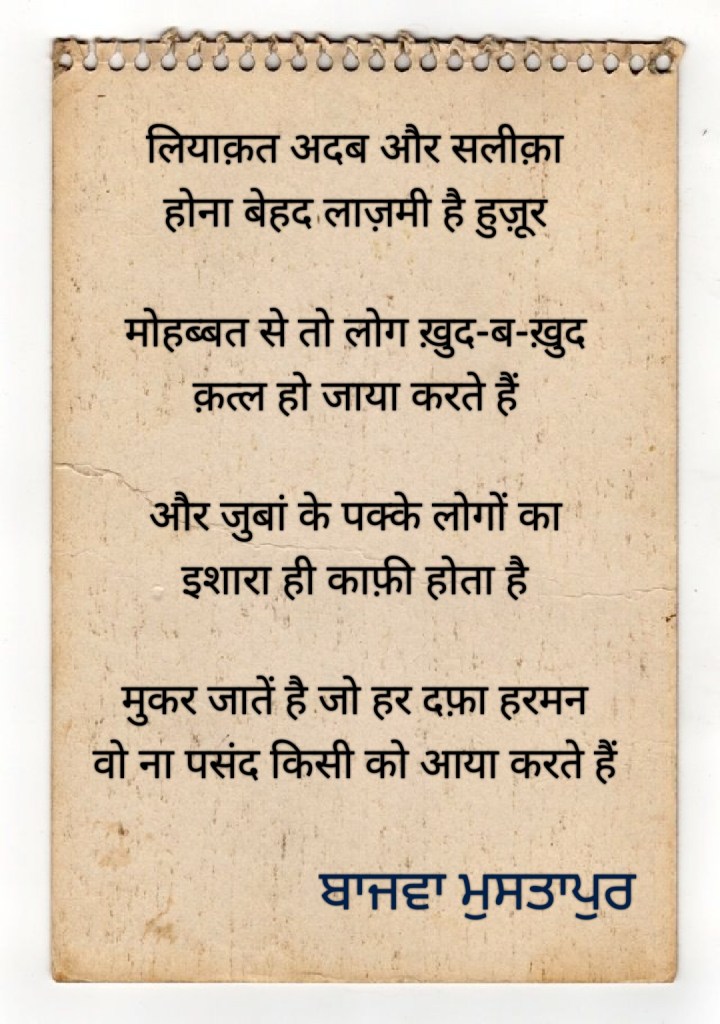 लियाक़त अदब और सलीक़ा
होना बेहद लाज़मी है हुज़ूर
मोहब्बत से तो लोग ख़ुद-ब-ख़ुद
क़त्ल हो जाया करते हैं
और जुबां के पक्के लोगों का
इशारा ही काफ़ी होता है
मुकर जातें है जो हर दफ़ा हरमन
वो ना पसंद किसी को आया करते हैं
ਬਾਜਵਾ ਮੁਸਤਾਪੁਰ